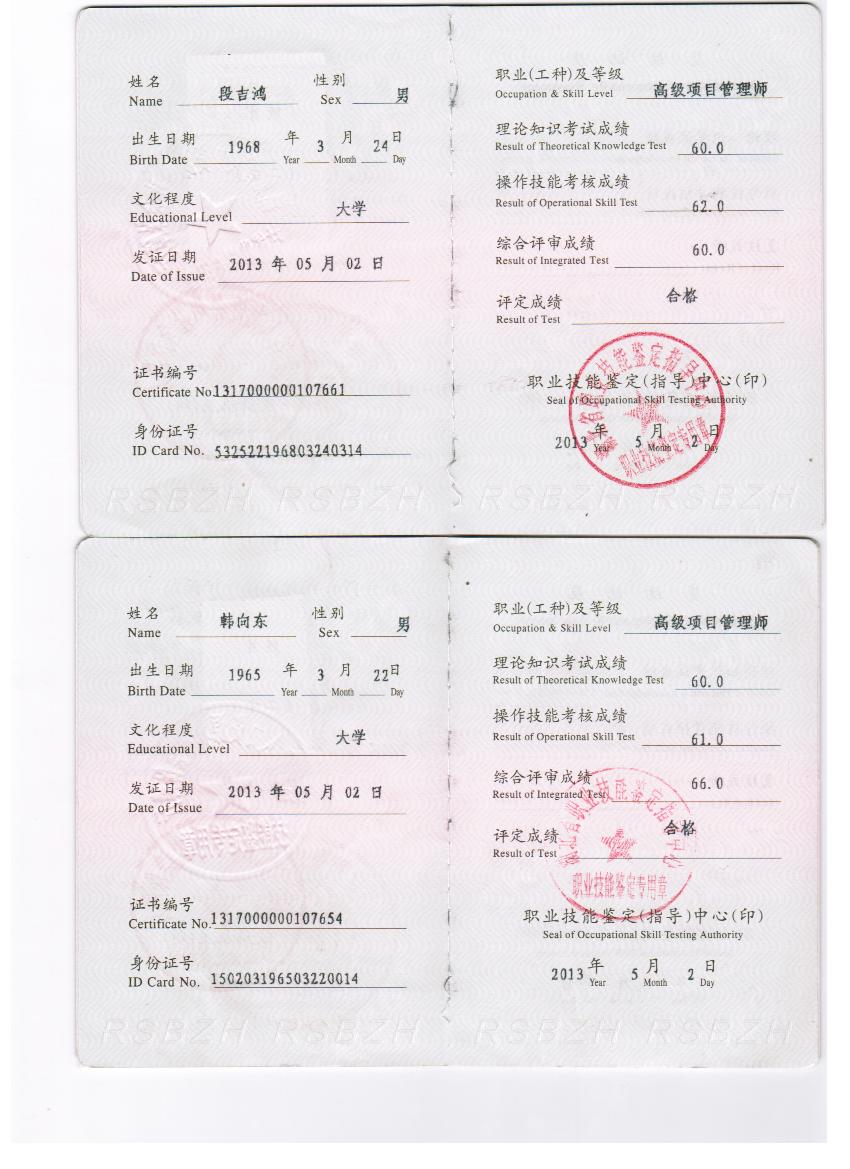 姓名 段吉鸿 性别 男
Name Sex
出生日期 1968 年 3 月 24 日
Birth Date Year Month Day
文化程度 大学
Educational Level
发证日期 2013 年 05 月 02 日
Date of Issue
证书编号
Certificate No. 1317000000107661
身份证号
ID Card No. 532522196803240314
职业(工种)及等级 高级项目管理师
Occupation & Skill Level
理论知识考试成绩 60.0
Result of Theoretical Knowledge Test
操作技能考核成绩 62.0
Result of Operational Skill Test
综合评审成绩 60.0
Result of Integrated Test
评定成绩 合格
Result of Test
职业技能鉴定(指导)中心(印)
Seal of Occupational Skill Testing Authority
2013 年 5 月 2 日
Year Month Day
职业技能鉴定专用章
RSBZH RSBZH RSBZH RSBZH
姓名 韩向东 性别 男
Name Sex
出生日期 1965 年 3 月 22 日
Birth Date Year Month Day
文化程度 大学
Educational Level
发证日期 2013 年 05 月 02 日
Date of Issue
证书编号
Certificate No. 1317000000107654
身份证号
ID Card No. 150203196503220014
职业(工种)及等级 高级项目管理师
Occupation & Skill Level
理论知识考试成绩 60.0
Result of Theoretical Knowledge Test
操作技能考核成绩 61.0
Result of Operational Skill Test
综合评审成绩 66.0
Result of Integrated Test
评定成绩 合格
Result of Test
职业技能鉴定专用章
职业技能鉴定(指导)中心(印)
Seal of Occupational Skill Testing Authority
2013 年 5 月 2 日
Year Month Day
RSBZH RSBZH RSBZH RSBZH